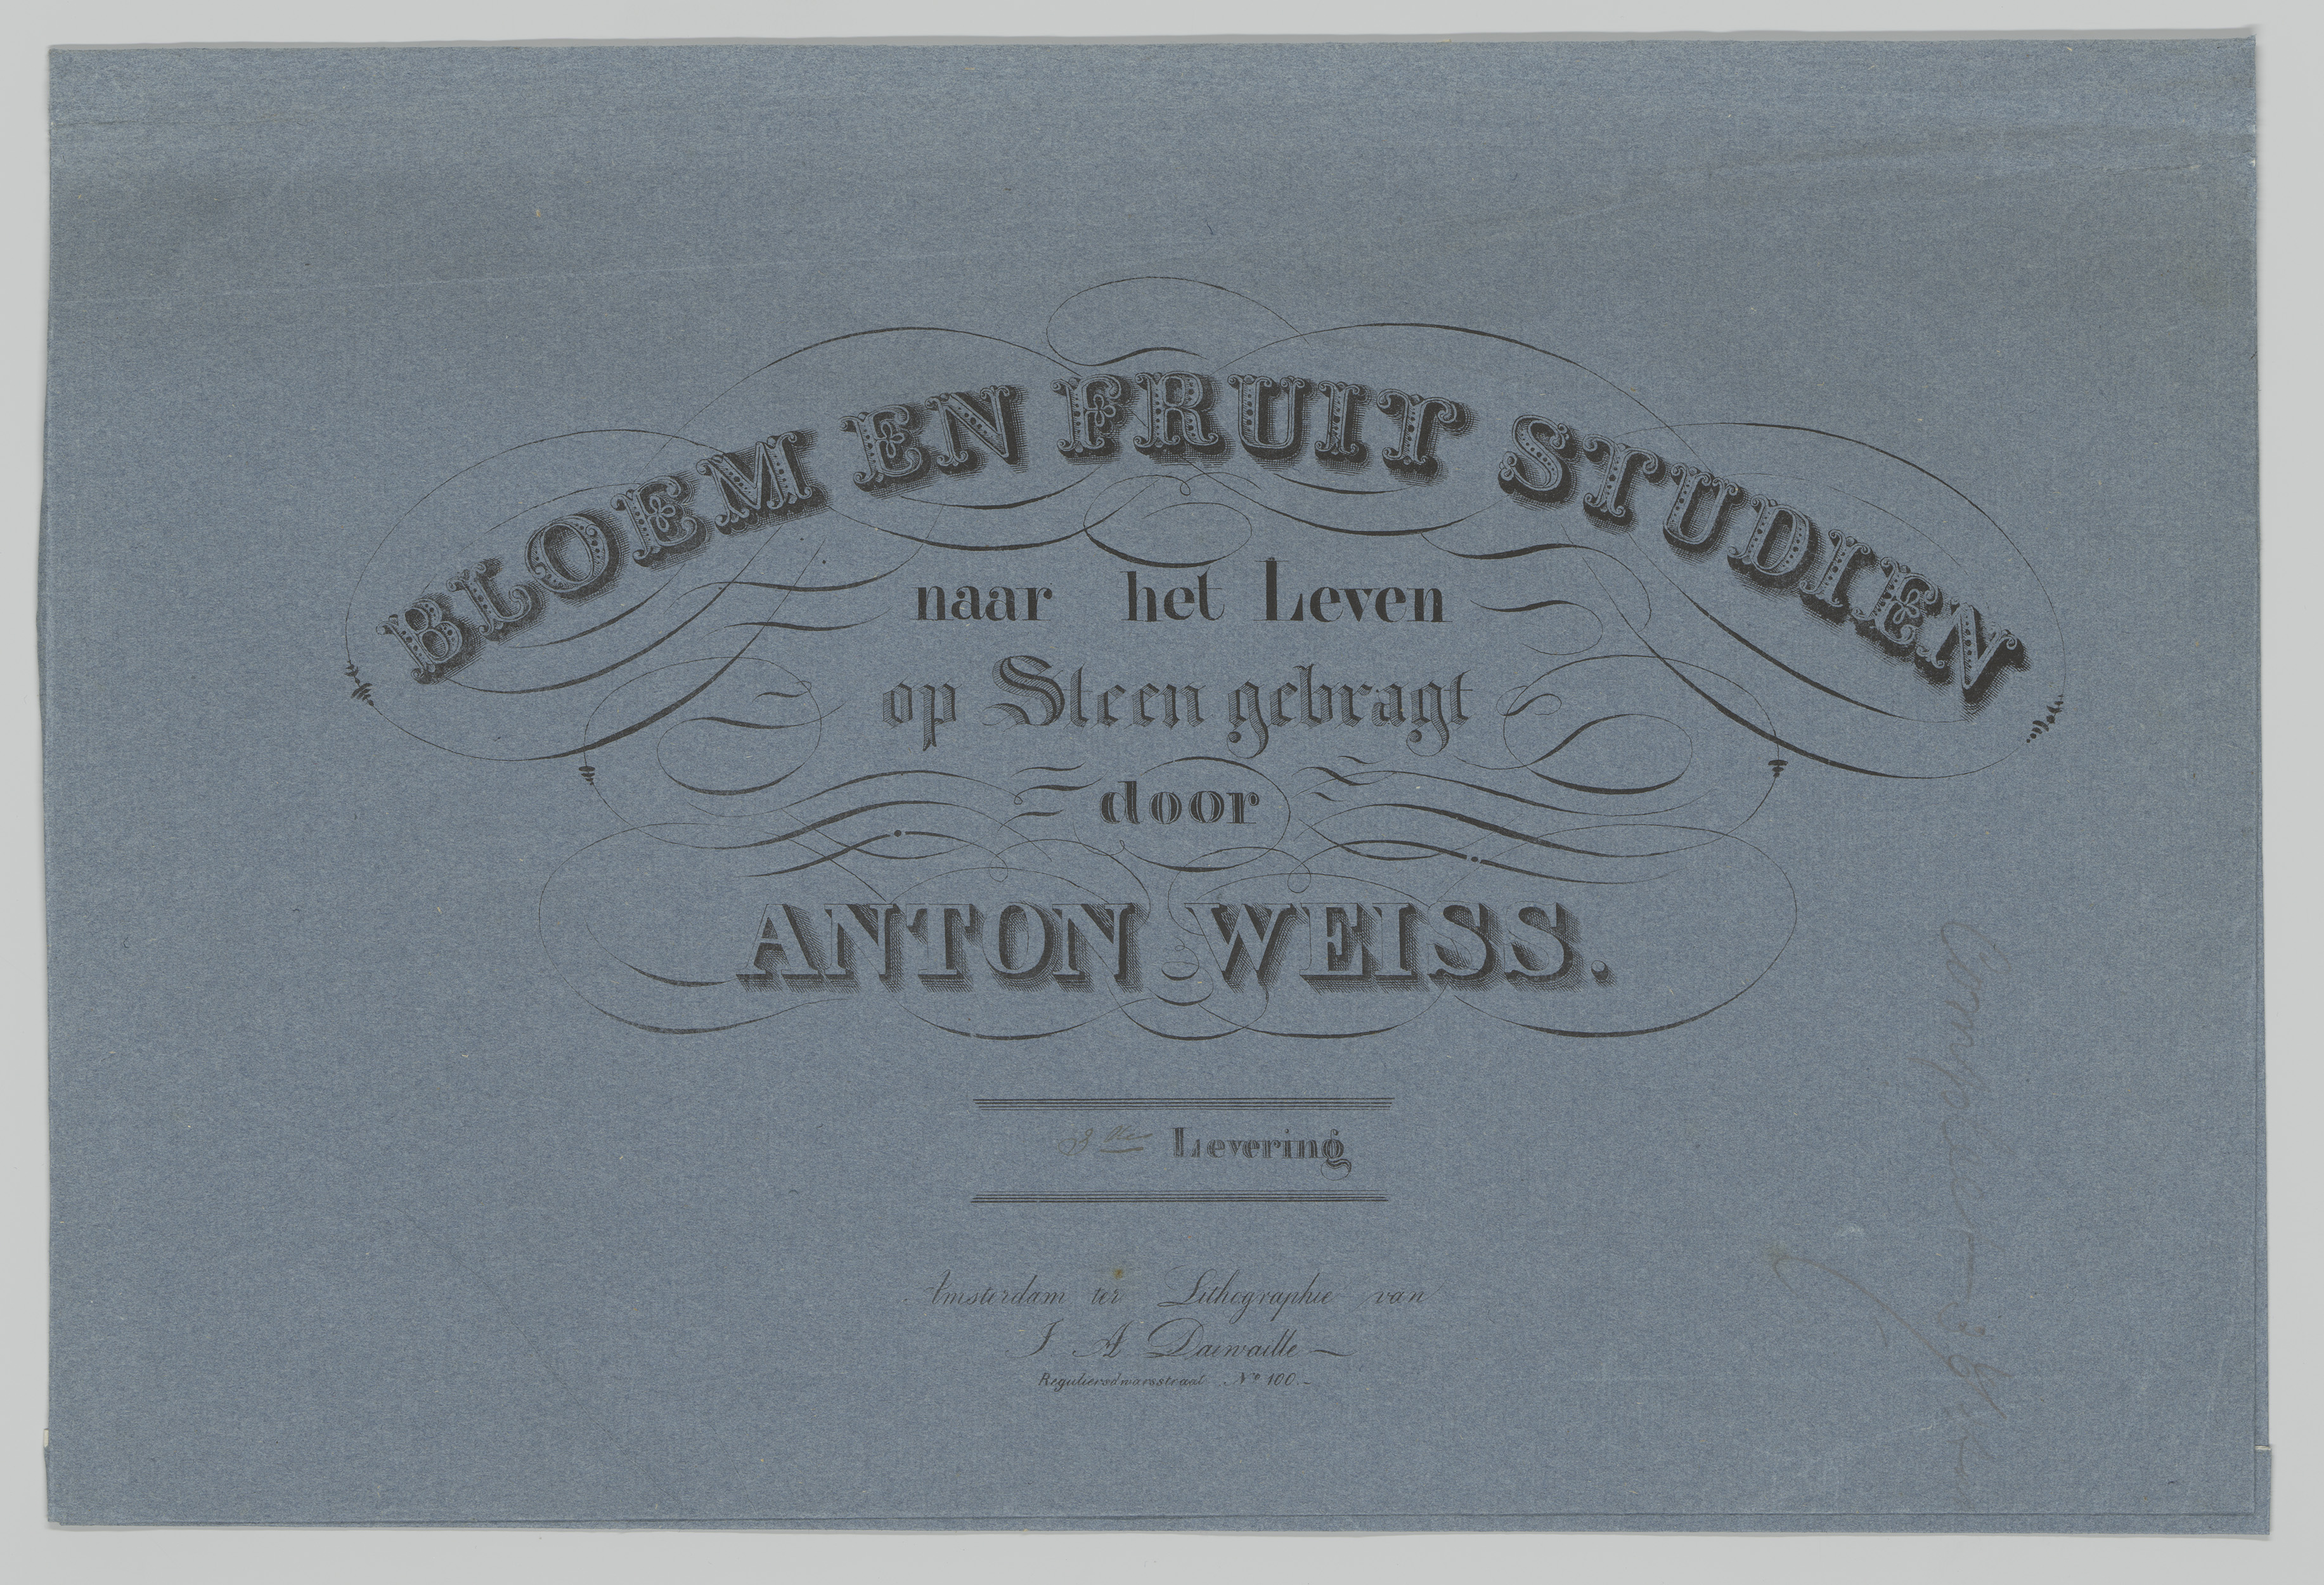 BLOEM EN FRUIT STUDIEN
naar het Leven
op Steen gebragt
door
ANTON WEISS.
3de Levering
Amsterdam ter Lithographie van
J A Daiwaille
Reguliersdwarsstraat No 100.